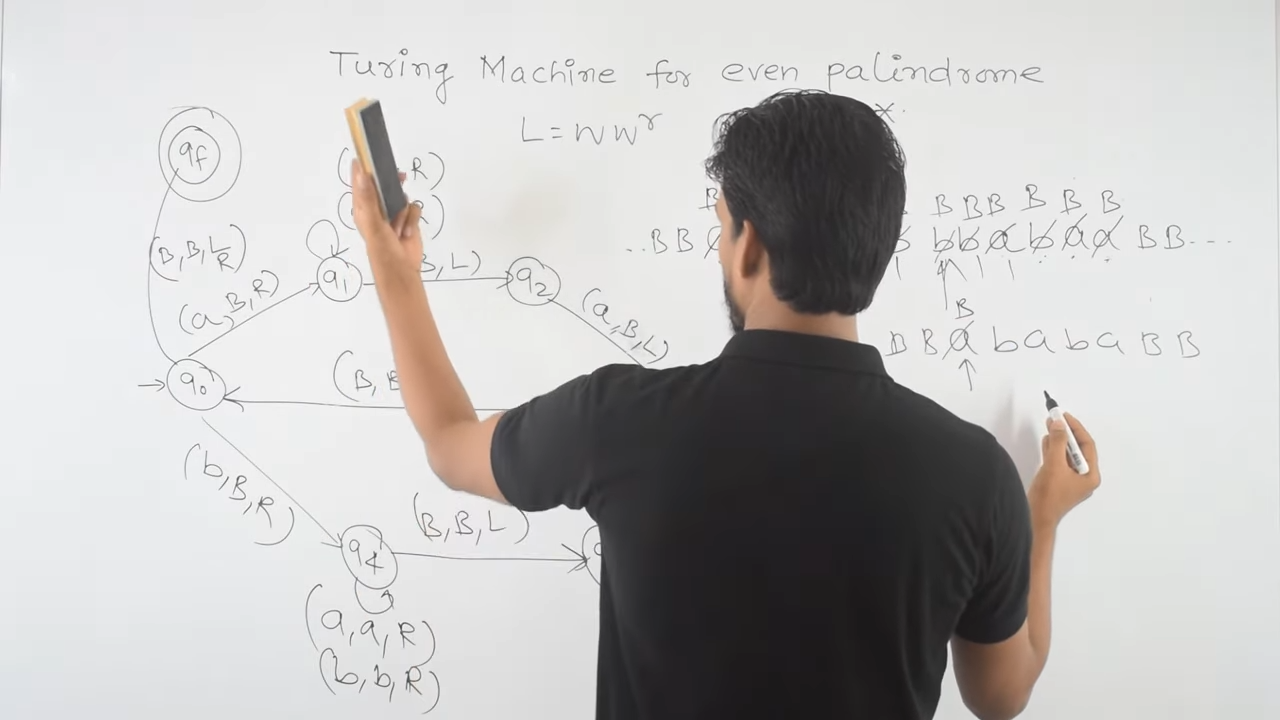 Turing Machine for even palindrome
L = w w^r
qf
R)
R)
(B, B, L/R)
(a, B, R)
q1
B, L)
q2
(a, B, L)
q0
(B, B
(b, B, R)
q4
(B, B, L)
(a, a, R)
(b, b, R)
B B B B B B B
..BB a b b a b a a BB---
B
B B a b a b a B B